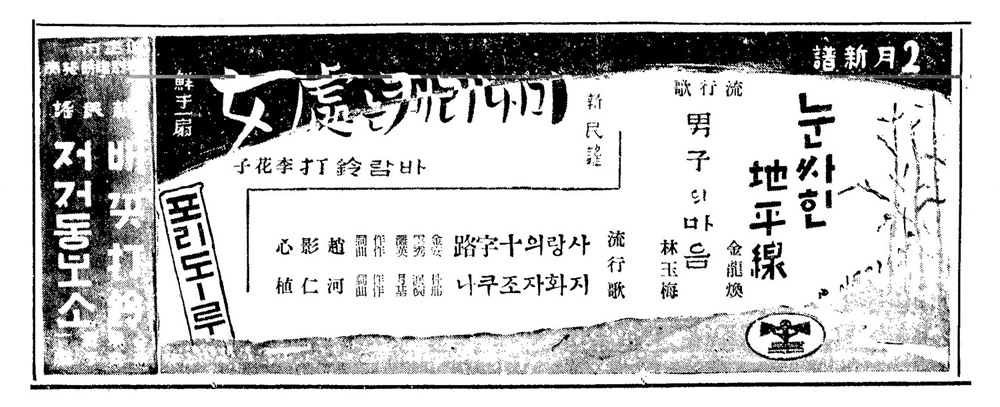 2月新譜
눈싸힌
地平線
金龍煥
流行歌
男子의마음
林玉梅
新民謠
미나리캐는處女
鮮于一扇
바람鈴打 李花子
流行歌
사랑의十字路
趙影心
지화자조쿠나
河仁植
포리도-루
民謠
打鈴
저거동보소